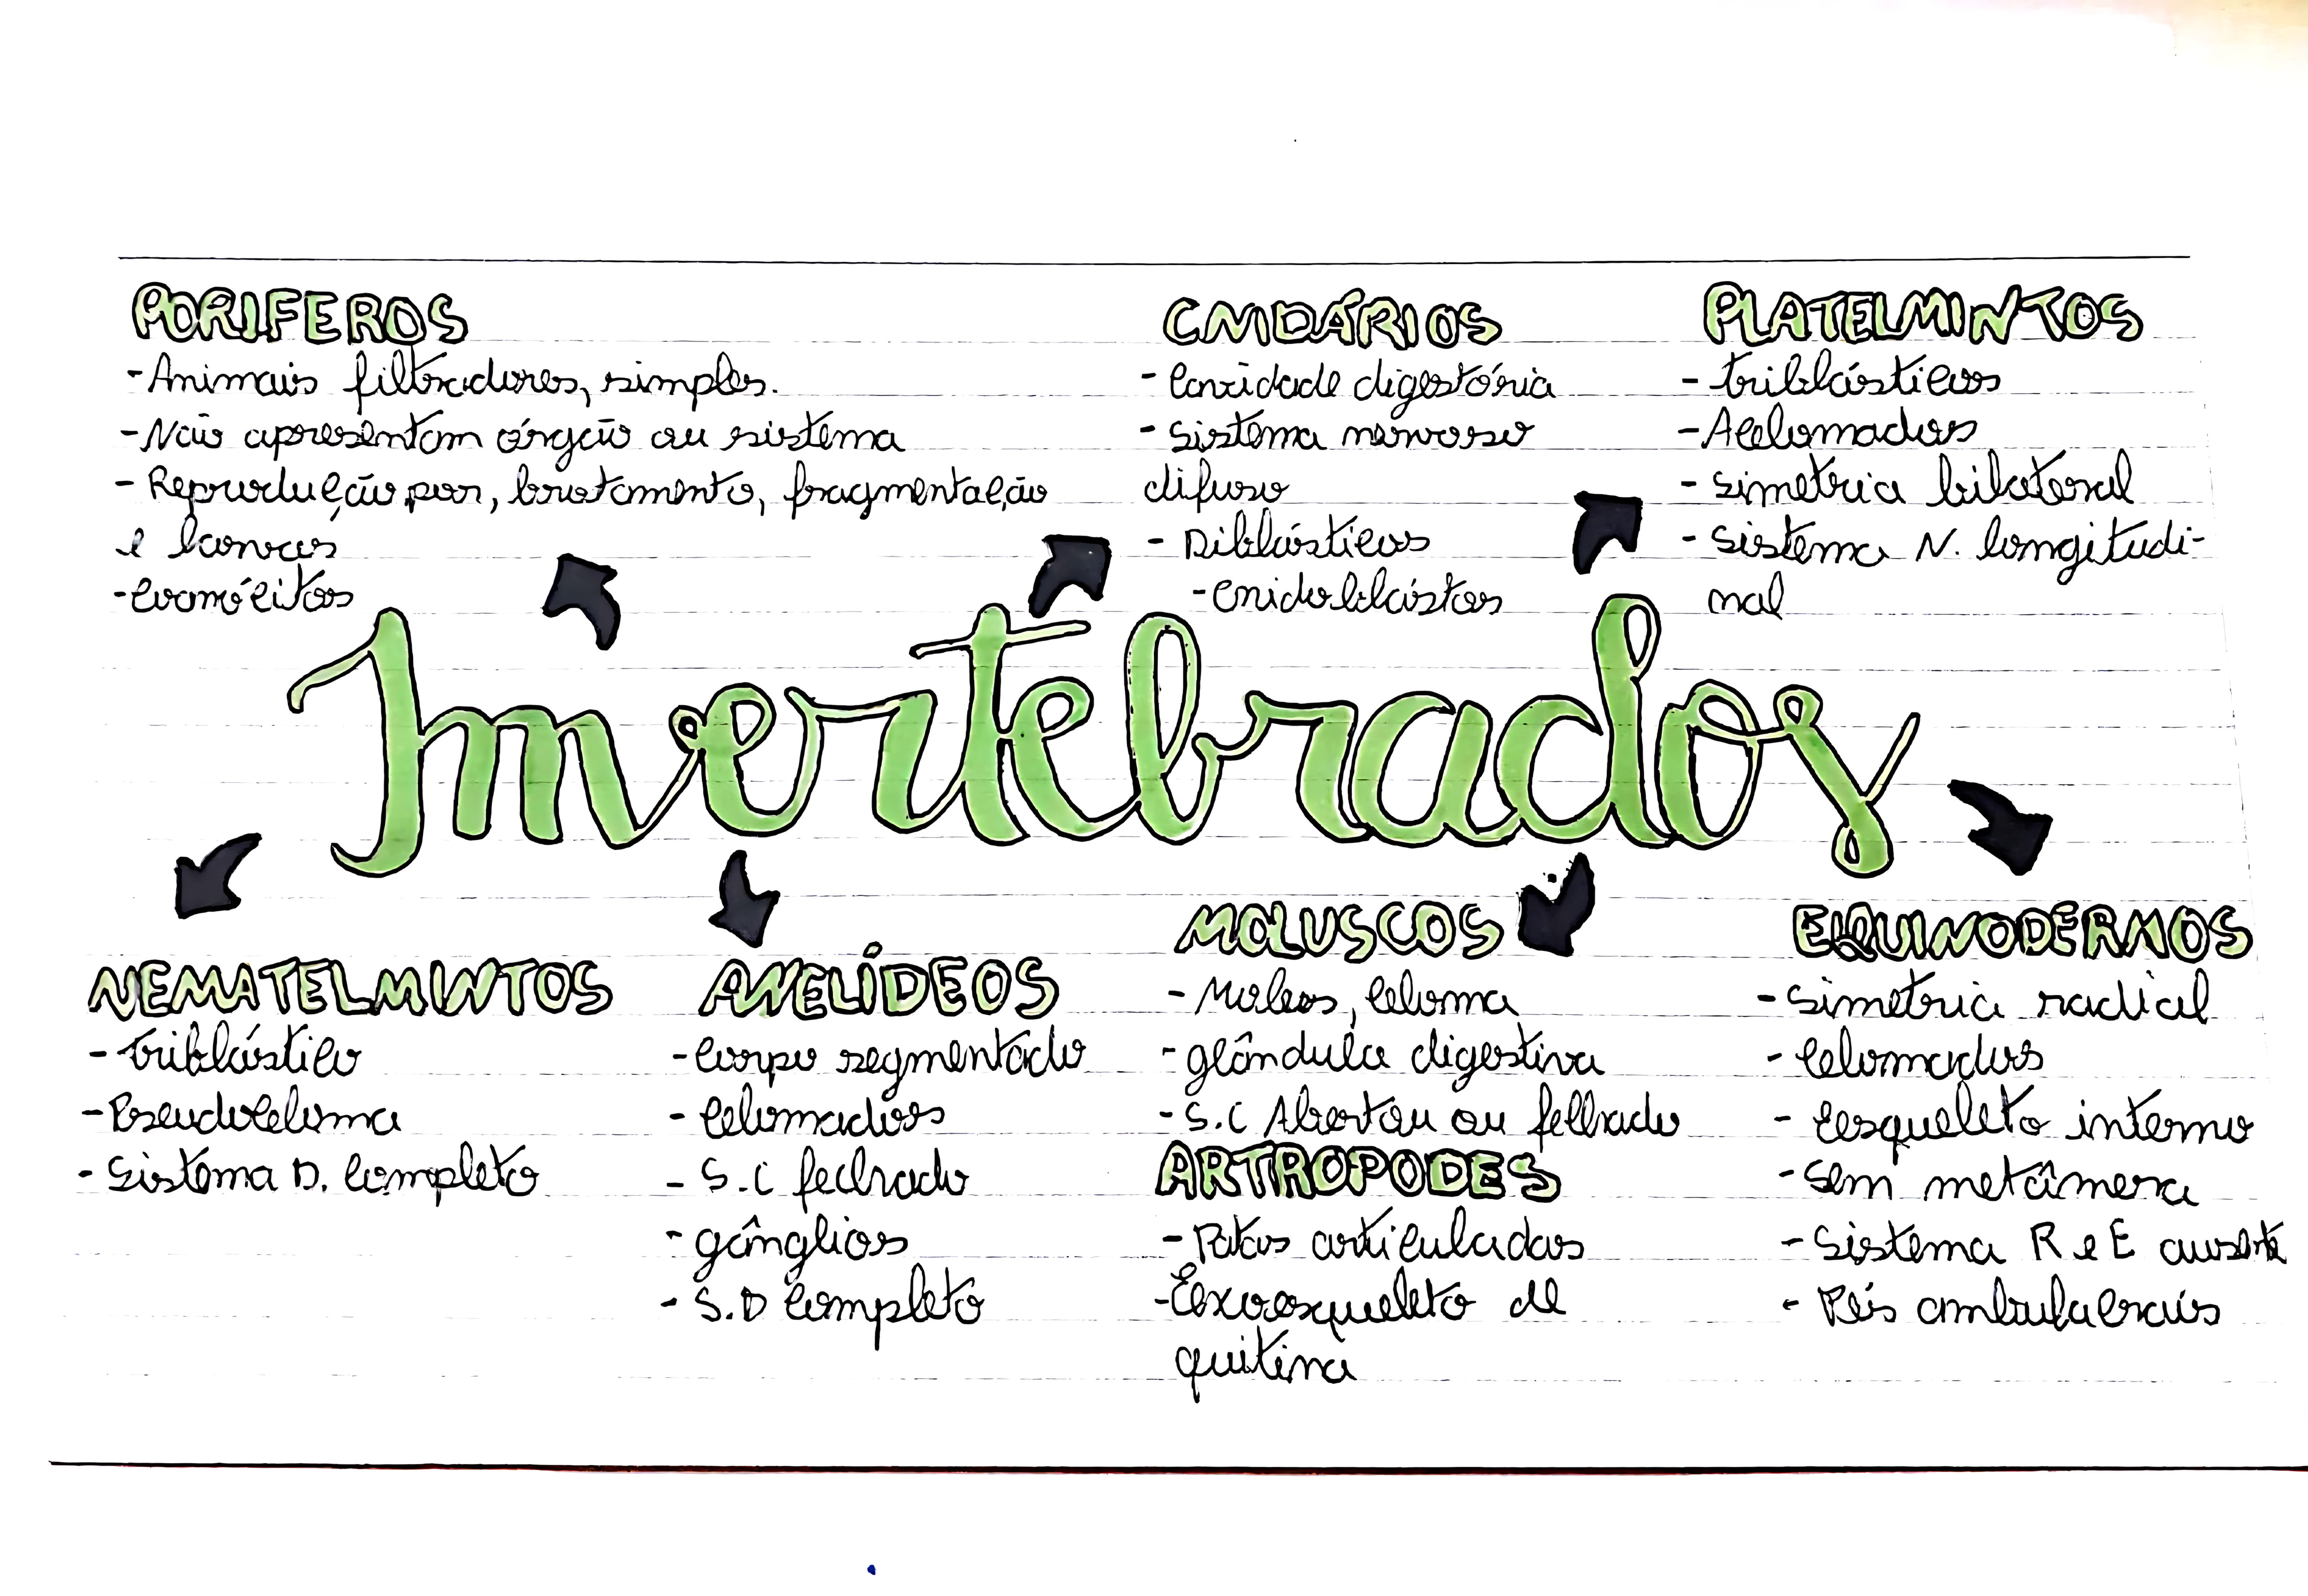 PORIFEROS
- Animais filtradores, simples.
- Não apresentam órgão ou sistema
- Reprodução por, brotamento, fragmentação
e larvas
- coanócitos
CNIDÁRIOS
- Cavidade digestória
- Sistema nervoso
difuso
- Diblásticos
- cnidoblástos
PLATELMINTOS
- triblásticos
- Acelomados
- simetria bilateral
- Sistema N. longitudi-
nal
Invertebrados
NEMATELMINTOS
- triblástico
- Pseudoceloma
- Sistema D. Completo
ANELÍDEOS
- Corpo segmentado
- Celomados
- S.C fechado
- gânglios
- S.D Completo
MOLUSCOS
- Moles, Celoma
- glândula digestiva
- S.C Aberto ou fechado
ARTROPODES
- Patas articuladas
- Exoesqueleto de
quitina
EQUINODERMOS
- Simetria radial
- Celomados
- Esqueleto interno
- Sem metâmera
- Sistema R e E ausente
- Pés ambulacrais